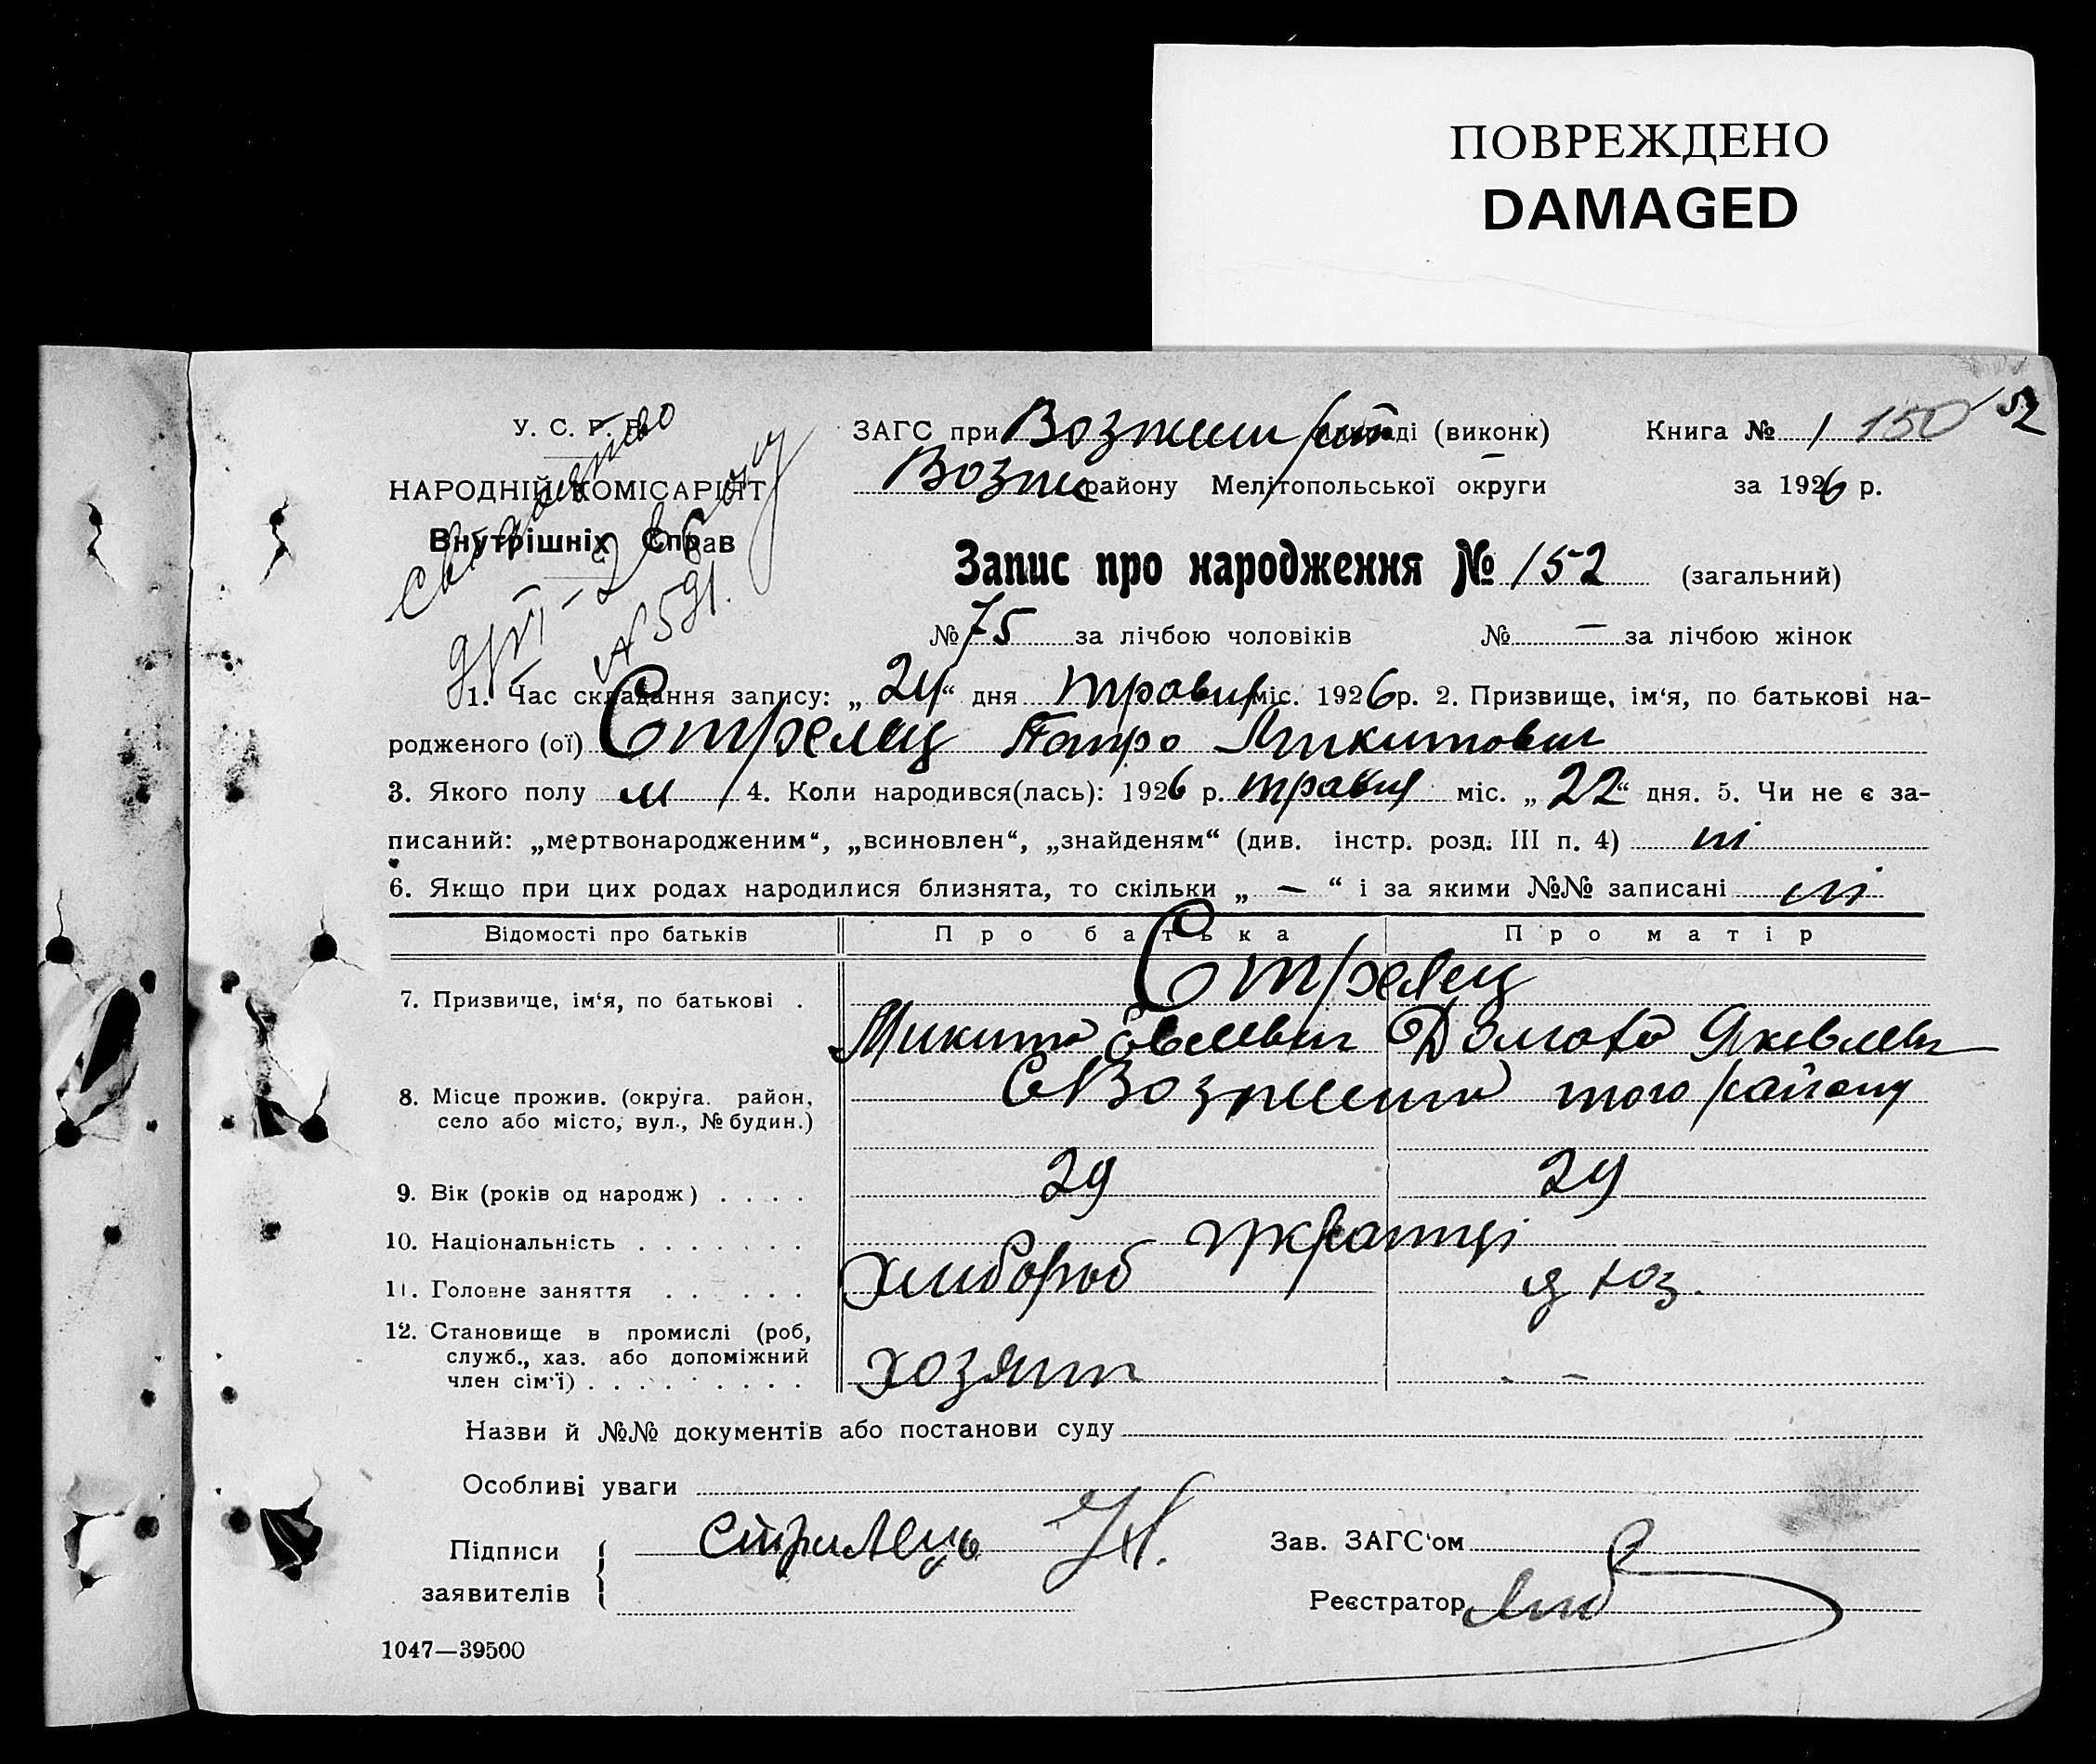 ПОВРЕЖДЕНО
DAMAGED
У. С. Р. Р.
ЗАГС при Вознесен рай раді (виконк)
Книга № 1 150 152
НАРОДНІЙ КОМІСАРІЯТ
Возне району Мелітопольської округи
за 1926 р.
Внутрішніх Справ
Свидоцтво
9/VI - 26 року
№ 591.
Запис про народження № 152 (загальний)
№ 75 за лічбою чоловіків № — за лічбою жінок
1. Час складання запису: „ 24 “ дня травня міс. 1926 р. 2. Призвище, ім‘я, по батькові на-
родженого (ої) Стрелец Петро Микитович
3. Якого полу м 4. Коли народився(лась): 1926 р. травня міс. „ 22 “ дня. 5. Чи не є за-
писаний: „мертвонародженим“, „всиновлен“, „знайденям“ (див. інстр. розд. III п. 4) ні
6. Якщо при цих родах народилися близнята, то скільки „ — “ і за якими №№ записані ні
Відомості про батьків Про батька Про матір
Стрелец
7. Призвище, ім‘я, по батькові .
Микита Яковлев
8. Місце прожив. (округа. район,
село або місто, вул., № будин.)
с Вознесенка того району
9. Вік (років од народж) . . . . 29 29
10. Національність . . . . . . . українці
11. Головне заняття . . . . . . хлибороб д хоз.
12. Становище в промислі (роб,
служб., хаз. або допоміжний
член сім‘ї) . . . . . . . . . хозяин —
Назви й №№ документів або постанови суду
Особливі уваги
Підписи
заявителів
Стрилець Н.
Зав. ЗАГС‘ом
Реєстратор
1047—39500